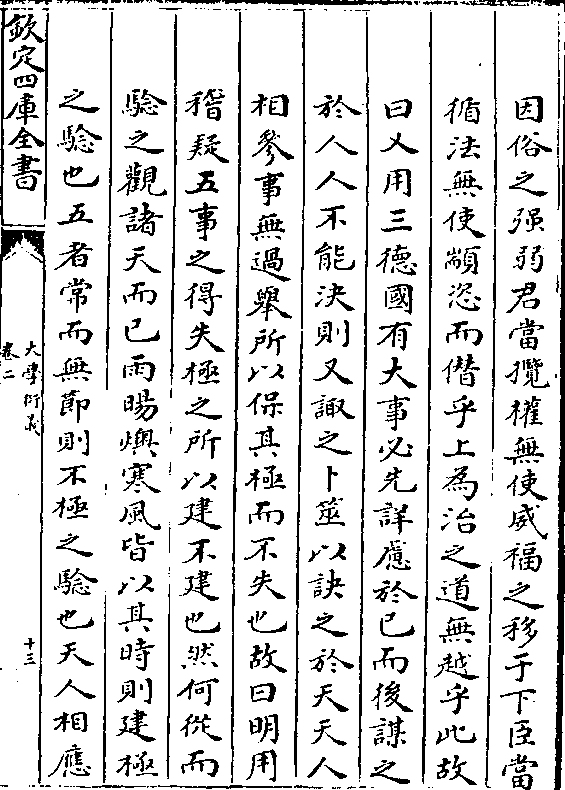 因俗之强弱君當攬權無使威福之移于下臣當
循法無使顓恣而僭乎上為治之道無越乎此故
曰乂用三德國有大事必先詳慮於已而後謀之
於人人不能決則又諏之卜筮以訣之於天天人
相參事無過舉所以保其極而不失也故曰明用
稽疑五事之得失極之所以建不建也然何從而
驗之觀諸天而已雨暘燠寒風皆以其時則建極
之驗也五者常而無節則不極之驗也天人相應
欽定四庫全書
大學衍義
卷二
十三